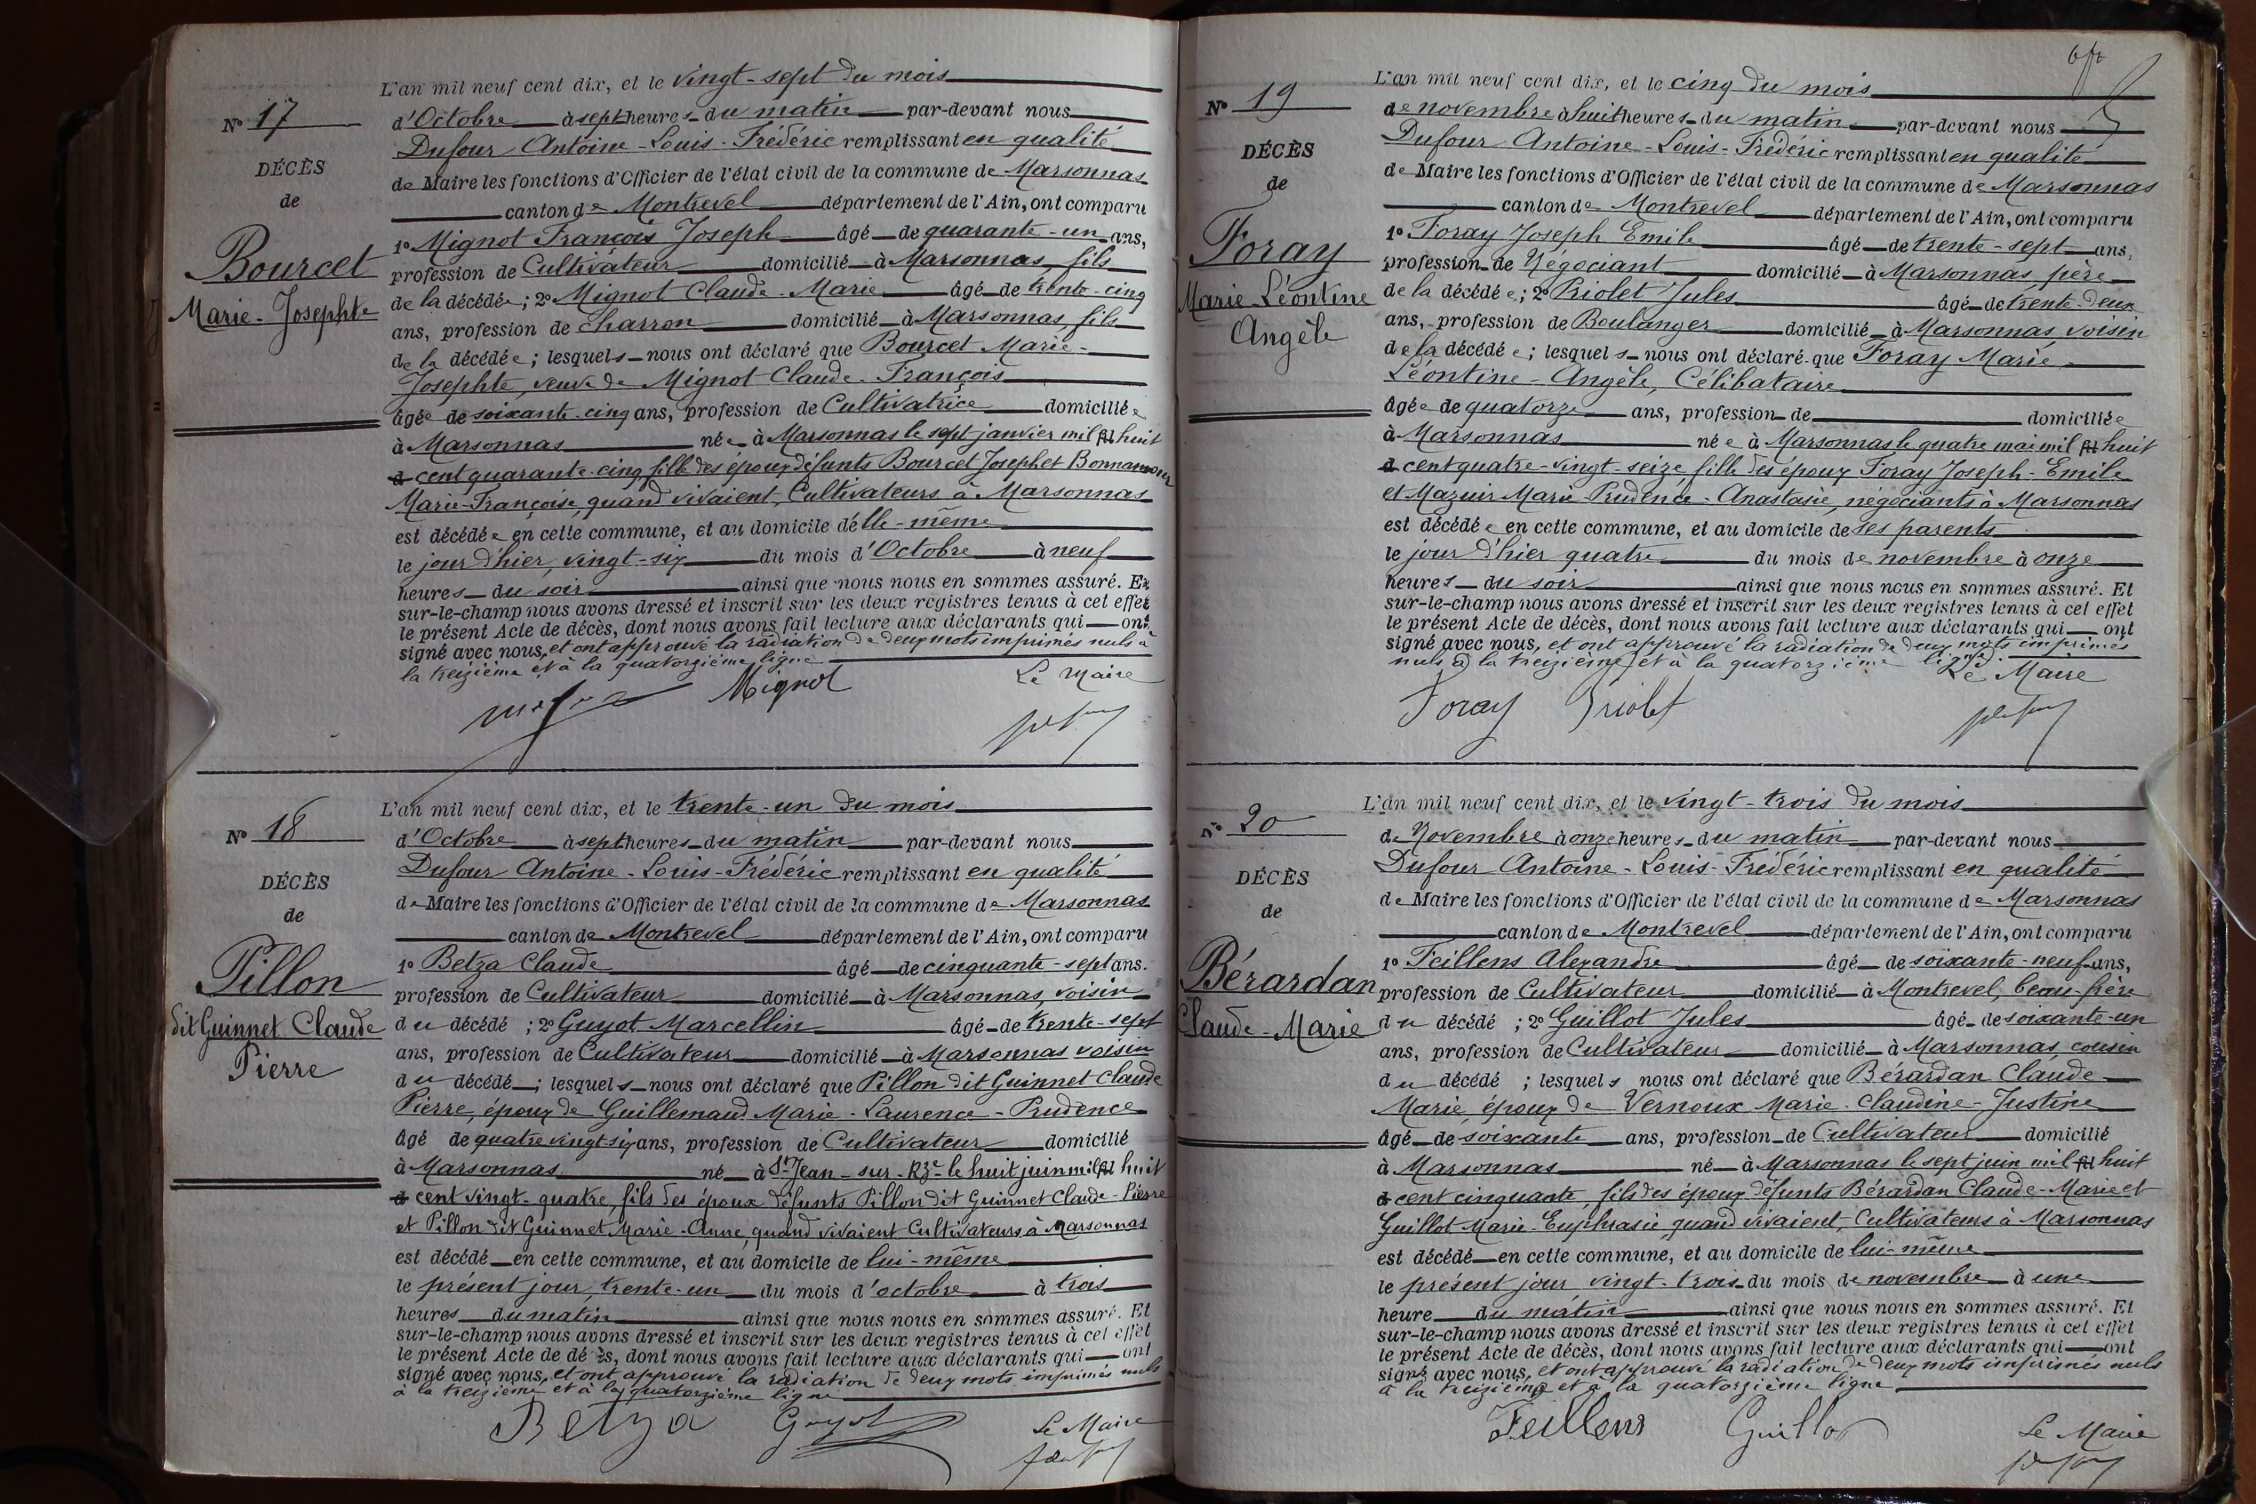 L'an mil neuf cent dix, et le vingt-sept du mois
d'Octobre à sept heures du matin par-devant nous
Dufour Antoine-Louis-Frédéric remplissant en qualité
de Maire les fonctions d'Officier de l'état civil de la commune de Marsonnas
canton de Montrevel département de l'Ain, ont comparu
1º Mignot François Joseph âgé de quarante-un ans,
profession de Cultivateur domicilié à Marsonnas, fils
de la décédée; 2º Mignot Claude-Marie âgé de trente-cinq
ans, profession de charron domicilié à Marsonnas, fils
de la décédée; lesquels nous ont déclaré que Bourcet Marie-
Josephte, veuve de Mignot Claude-François
âgée de soixante-cinq ans, profession de Cultivatrice domiciliée
à Marsonnas née à Marsonnas le sept janvier mil huit
cent quarante-cinq, fille des époux défunts Bourcet Joseph et Bonnamour
Marie-Françoise, quand vivaient, Cultivateurs à Marsonnas
est décédée en cette commune, et au domicile d'elle-même
le jour d'hier, vingt-six du mois d'Octobre à neuf
heures du soir ainsi que nous nous en sommes assuré. Et
sur-le-champ nous avons dressé et inscrit sur les deux registres tenus à cet effet
le présent Acte de décès, dont nous avons fait lecture aux déclarants qui ont
signé avec nous, et ont approuvé la radiation de deux mots imprimés nuls à
la treizième et à la quatorzième ligne
Mignot Le Maire
Nº 17
DÉCÈS
de
Bourcet
Marie-Josephte
L'an mil neuf cent dix, et le trente-un du mois
d'Octobre à sept heures du matin par-devant nous
Dufour Antoine-Louis-Frédéric remplissant en qualité
de Maire les fonctions d'Officier de l'état civil de la commune de Marsonnas
canton de Montrevel département de l'Ain, ont comparu
1º Betza Claude âgé de cinquante-sept ans.
profession de Cultivateur domicilié à Marsonnas, voisin
du décédé; 2º Guyot Marcellin âgé de trente-sept
ans, profession de Cultivateur domicilié à Marsonnas voisin
du décédé; lesquels nous ont déclaré que Pillon dit Guinnet Claude
Pierre, époux de Guillemaud Marie-Laurence-Prudence
âgé de quatre vingt six ans, profession de Cultivateur domicilié
à Marsonnas né à St Jean-sur-Rze le huit juin mil huit
cent vingt-quatre, fils des époux défunts Pillon dit Guinnet Claude-Pierre
et Pillon dit Guinnet Marie-Anne, quand vivaient Cultivateurs à Marsonnas
est décédé en cette commune, et au domicile de lui-même
le présent jour, trente-un du mois d'octobre à trois
heures du matin ainsi que nous nous en sommes assuré. Et
sur-le-champ nous avons dressé et inscrit sur les deux registres tenus à cet effet
le présent Acte de décès, dont nous avons fait lecture aux déclarants qui ont
signé avec nous, et ont approuvé la radiation de deux mots imprimés nuls
à la treizième et à la quatorzième ligne
Betza Guyot Le Maire
Nº 18
DÉCÈS
de
Pillon
dit Guinnet Claude
Pierre
L'an mil neuf cent dix, et le cinq du mois
de novembre à huit heures du matin par-devant nous
Dufour Antoine-Louis-Frédéric remplissant en qualité
de Maire les fonctions d'Officier de l'état civil de la commune de Marsonnas
canton de Montrevel département de l'Ain, ont comparu
1º Foray Joseph Emile âgé de trente-sept ans,
profession de Négociant domicilié à Marsonnas, père
de la décédée; 2º Priolet Jules âgé de trente-deux
ans, profession de Boulanger domicilié à Marsonnas, voisin
de la décédée; lesquels nous ont déclaré que Foray Marie
Léontine-Angèle, Célibataire
âgée de quatorze ans, profession de domiciliée
à Marsonnas née à Marsonnas le quatre mai mil huit
cent quatre-vingt-seize, fille des époux Foray Joseph-Emile
et Mazuir Marie Prudence-Anastasie, négociants à Marsonnas
est décédée en cette commune, et au domicile de ses parents
le jour d'hier quatre du mois de novembre à onze
heures du soir ainsi que nous nous en sommes assuré. Et
sur-le-champ nous avons dressé et inscrit sur les deux registres tenus à cet effet
le présent Acte de décès, dont nous avons fait lecture aux déclarants qui ont
signé avec nous, et ont approuvé la radiation de deux mots imprimés
nuls à la treizième et à la quatorzième ligne.
Le Maire
Foray Priolet
Nº 19
DÉCÈS
de
Foray
Marie-Léontine
Angèle
L'an mil neuf cent dix, et le vingt-trois du mois
de Novembre à onze heures du matin par-devant nous
Dufour Antoine-Louis-Frédéric remplissant en qualité
de Maire les fonctions d'Officier de l'état civil de la commune de Marsonnas
canton de Montrevel département de l'Ain, ont comparu
1º Feillens Alexandre âgé de soixante-neuf ans,
profession de Cultivateur domicilié à Montrevel, beau-frère
du décédé; 2º Guillot Jules âgé de soixante-un
ans, profession de Cultivateur domicilié à Marsonnas, cousin
du décédé; lesquels nous ont déclaré que Bérardan Claude-
Marie, époux de Vernoux Marie-Claudine-Justine
âgé de soixante ans, profession de Cultivateur domicilié
à Marsonnas né à Marsonnas le sept juin mil huit
cent cinquante, fils des époux défunts Bérardan Claude-Marie et
Guillot Marie-Euphrasie, quand vivaient, Cultivateurs à Marsonnas
est décédé en cette commune, et au domicile de lui-même
le présent jour vingt-trois du mois de novembre à une
heure du matin ainsi que nous nous en sommes assuré. Et
sur-le-champ nous avons dressé et inscrit sur les deux registres tenus à cet effet
le présent Acte de décès, dont nous avons fait lecture aux déclarants qui ont
signé avec nous, et ont approuvé la radiation de deux mots imprimés nuls
à la treizième et à la quatorzième ligne
Feillens Guillot Le Maire
Nº 20
DÉCÈS
de
Bérardan
Claude-Marie